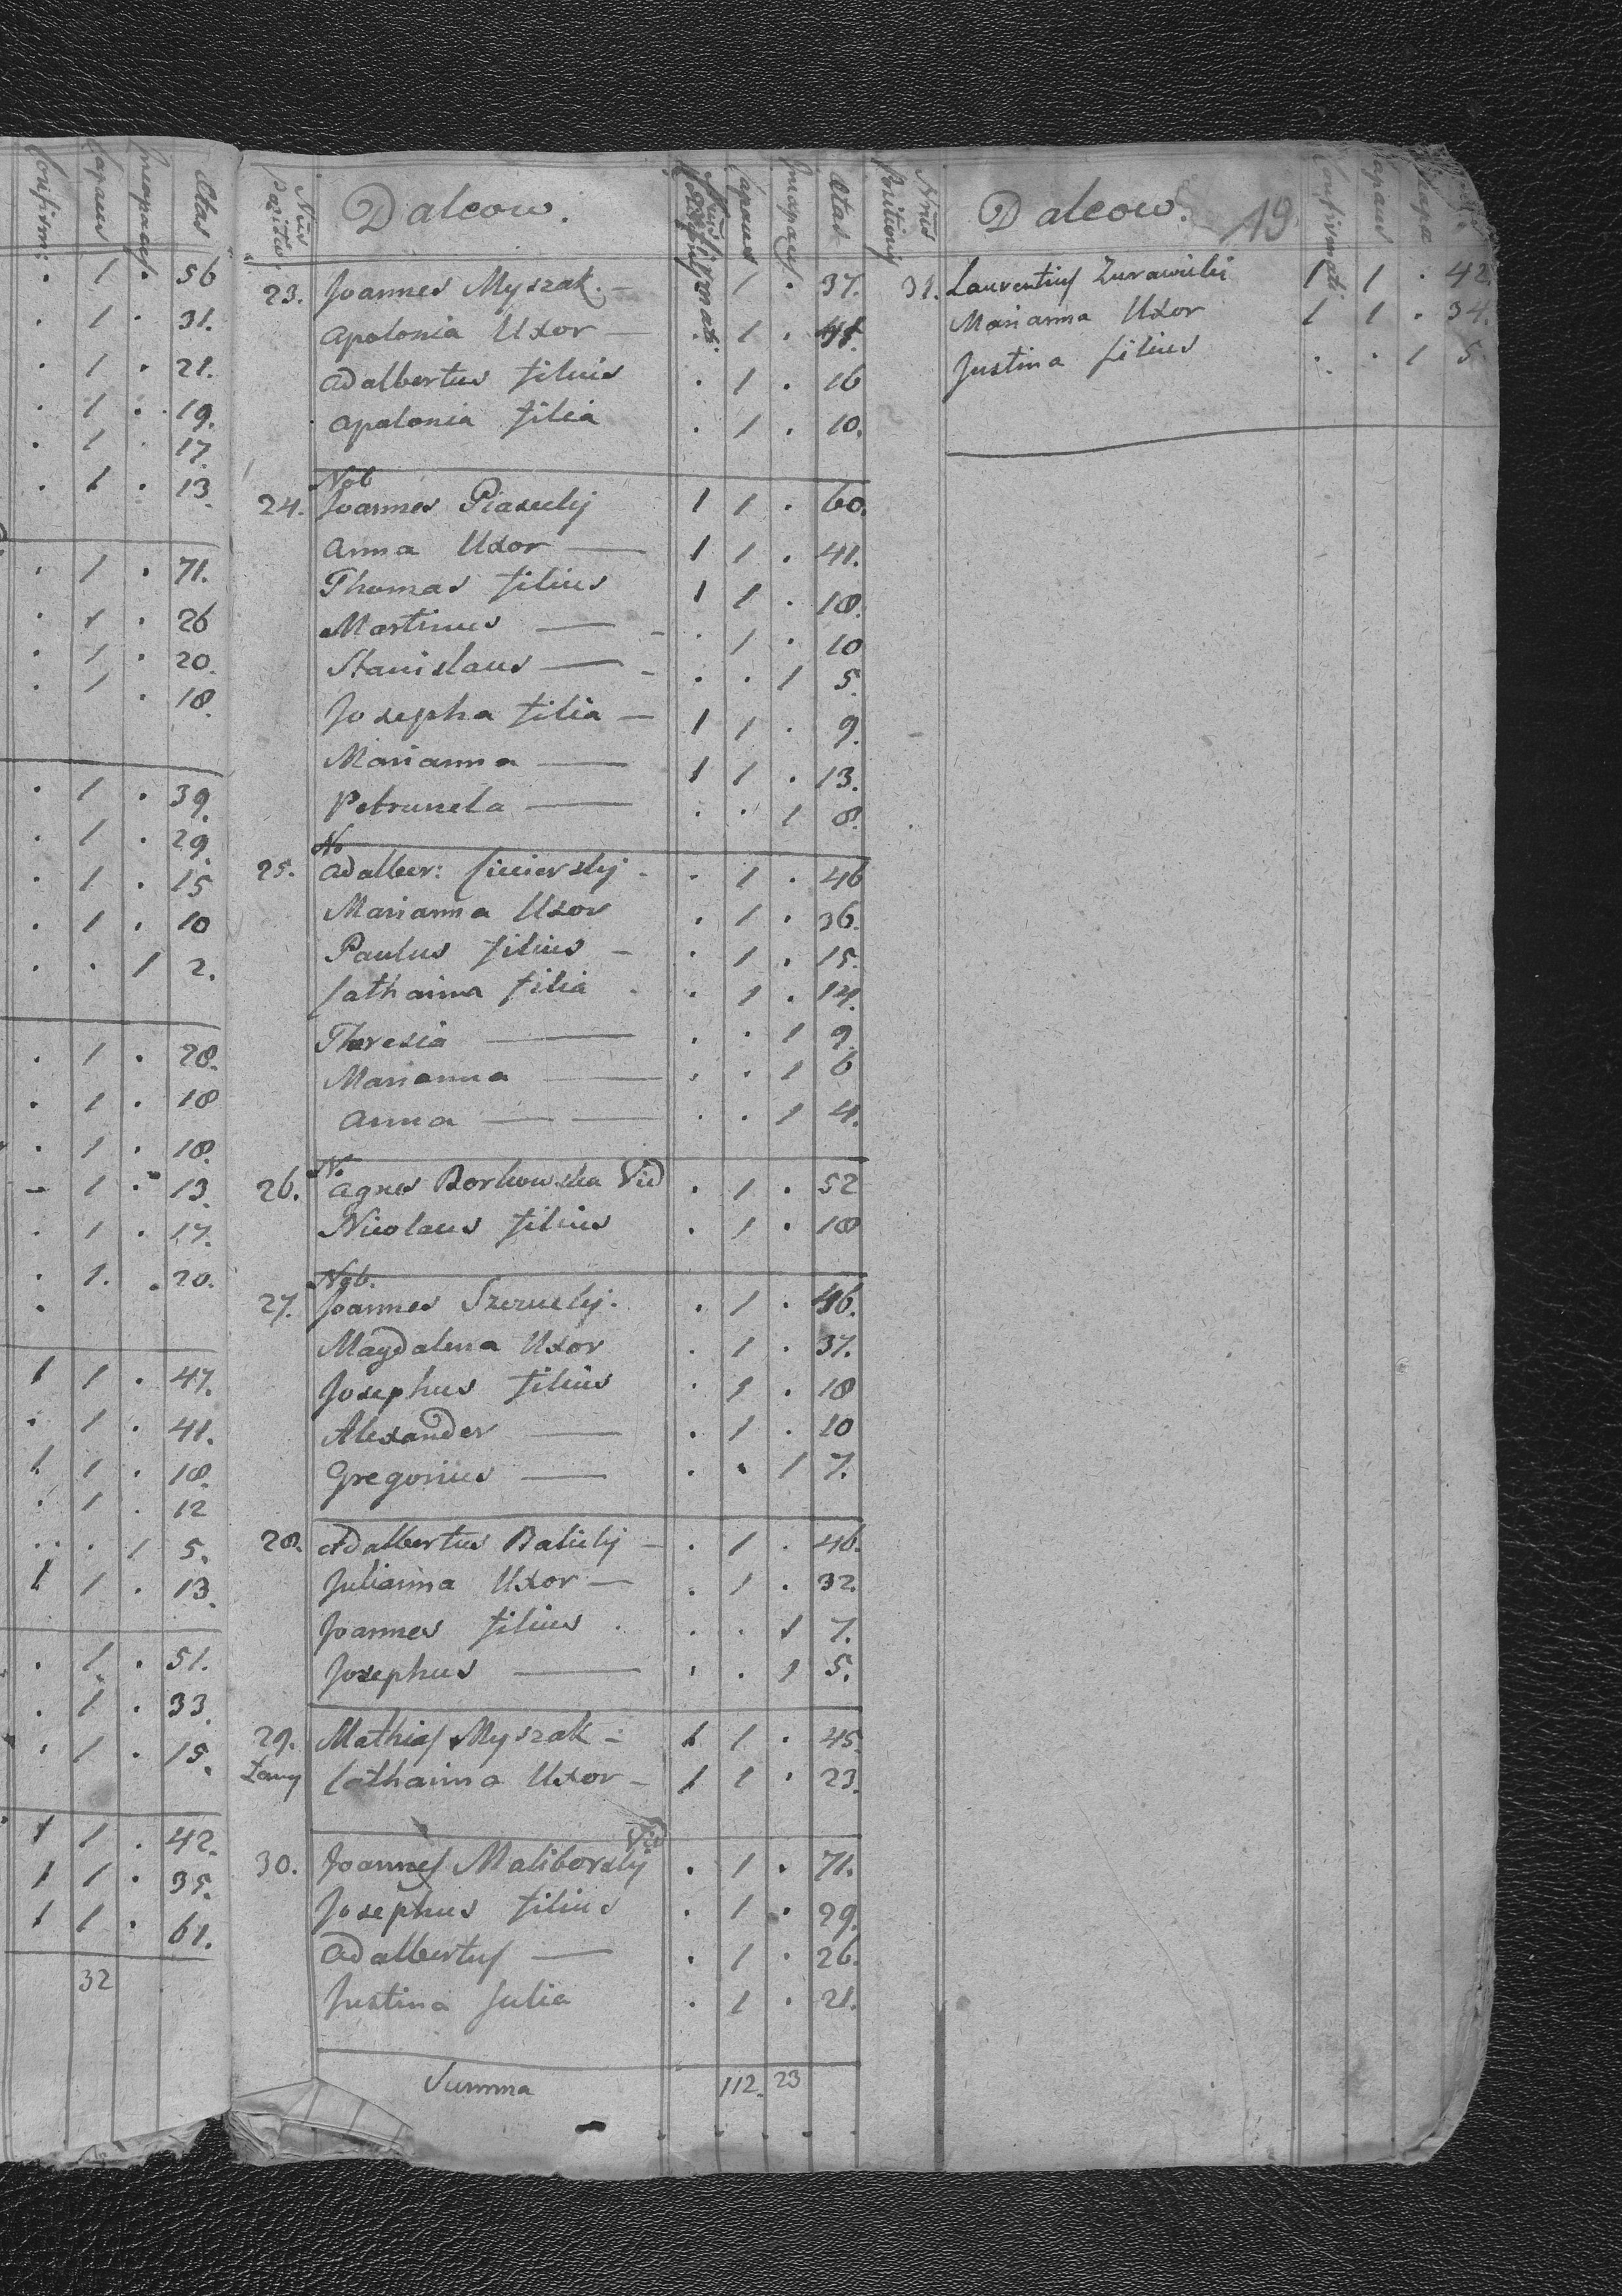 Confirm: Capaces Incapaces Ætas
. 1 . 56
. 1 . 31.
. 1 . 21.
. 1 . 19.
. 1 . 17.
. 1 . 13.
. 1 . 71.
. 1 . 26
. 1 . 20.
. 1 . 18.
. 1 . 39.
. 1 . 29.
. 1 . 15
. 1 . 10
. . 1 2.
. 1 . 28.
. 1 . 18
. 1 . 18.
- 1 . 13.
. 1 . 17.
. 1. . 20.
.
1 1 . 47.
. 1 . 41.
1 1 . 18.
. 1 . 12
. . 1 5.
1 1 . 13.
. 1 . 51.
. 1 . 33.
. 1 . 15.
1 1 . 42.
1 1 . 35.
1 1 . 61.
32
Nrūs Positio. Dalcow. Capaces Incapaces Ætas
23. Joannes Myszak. - 1 . 37.
Apolonia Uxor - 1 .
Adalbertus filius . 1 . 16
Apolonia filia . 1 . 10.
Nob
24. Joannes Piasecky 1 1 . 60.
Anna Uxor - 1 1 . 41.
Thomas filius 1 1 . 18.
Martinus - . 1 . 10
Stanislaus - . . 1 5.
Josepha filia - 1 1 . 9.
Marianna - 1 1 . 13.
Petrunela - . . 1 8.
No
25. Adalber: . 1 . 46
Marianna Uxor . 1 . 36.
Paulus filius - . 1 . 15.
Catharina filia . 1 . 14.
Theresia - . . 1 9.
Marianna - . . 1 6
Anna - - . . 1 4.
N.
26. Agnes Borkowska Vid . 1 . 52
Nicolaus filius . 1 . 18
Nob.
27. Joannes . 1 . 46.
Magdalena Uxor . 1 . 37.
Josephus filius . 1 . 18
Alexander - . 1 . 10
Gregorius - . . 1 7.
28. Adalbertus Balicky - . 1 . 46.
Julianna Uxor - . 1 . 32.
Joannes filius . . . 1 7.
Josephus - . . 1 5.
29. Mathias Myszak - 1 1 . 45.
Catharina Uxor - 1 1 . 23.
Vid
30. Joannes Maliborsky . 1 . 71.
Josephus filius . 1 . 29.
Adalbertus - . 1 . 26.
Justina filia . 1 . 21.
Summa 112. 23
Nrūs Positionis Dalcow. 19 Confirmati Capaces Incapa
31. Laurentius Zurawicki 1 1 . 42.
Marianna Uxor 1 1 . 34.
Justina filius . . 1 5.